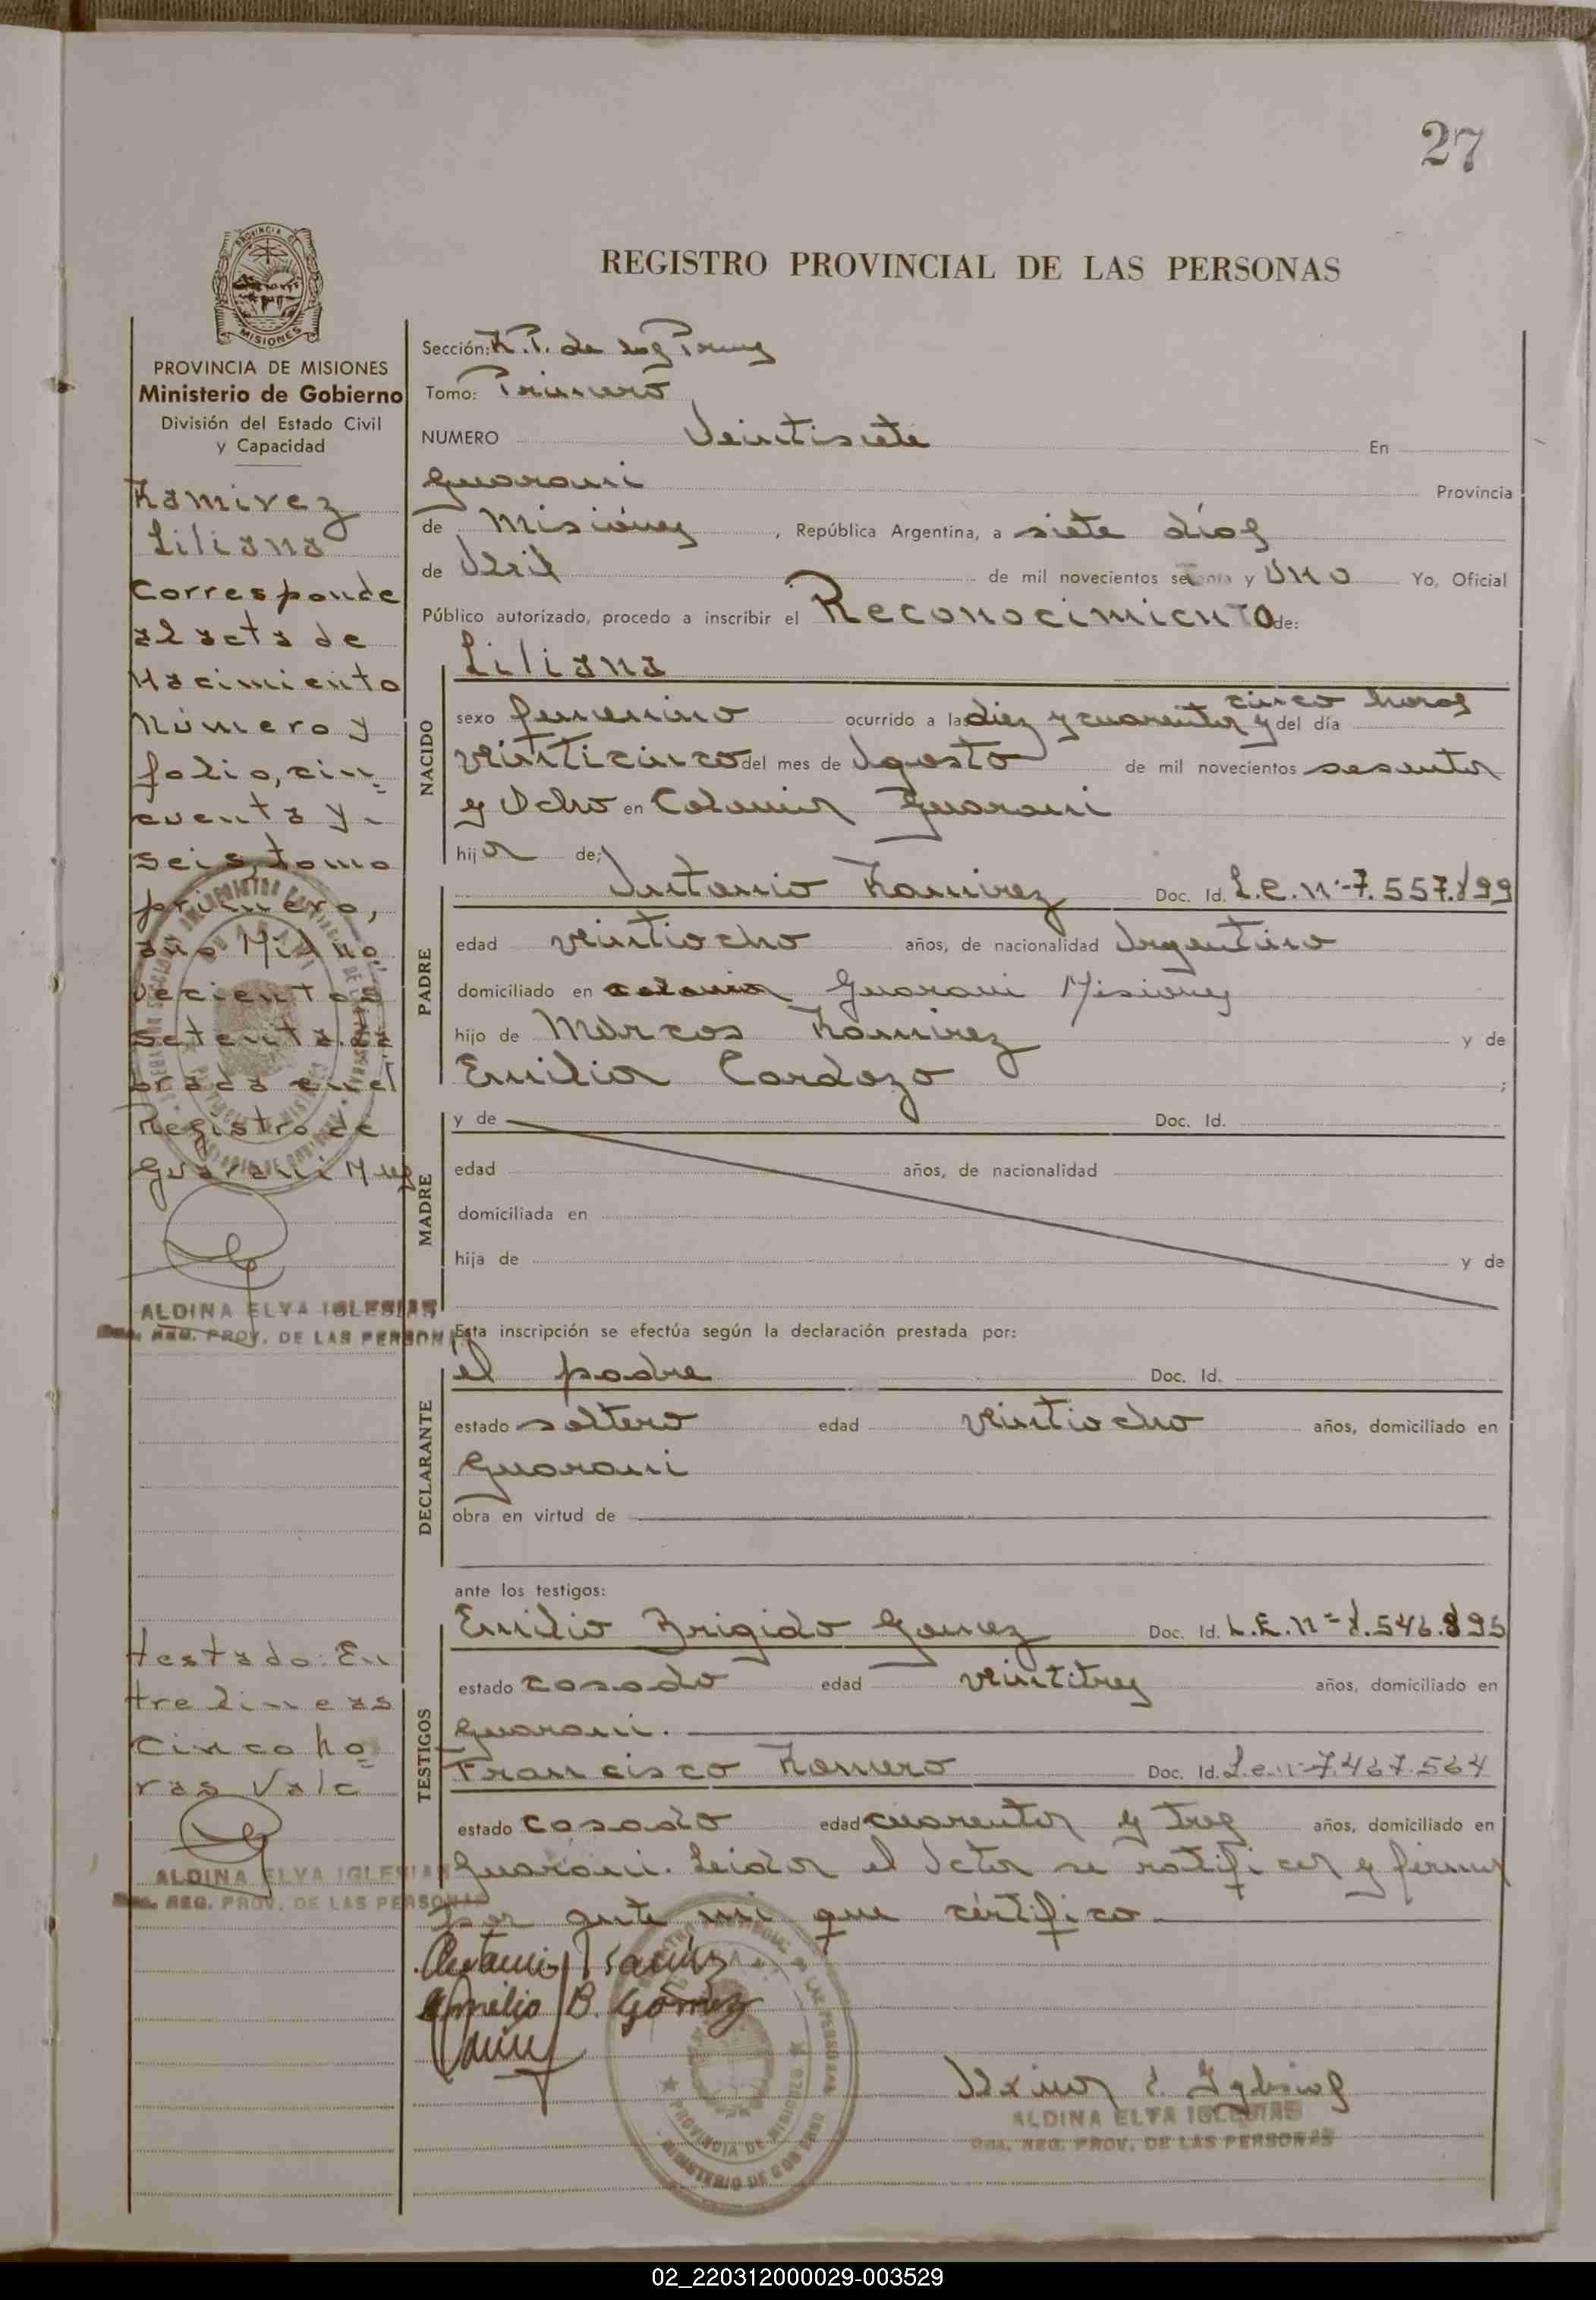 27
REGISTRO PROVINCIAL DE LAS PERSONAS
MISIONES
PROVINCIA DE MISIONES
Ministerio de Gobierno
División del Estado Civil
y Capacidad
Ramirez
Liliana
Corresponde
al acta de
Nacimiento
Número y
folio, cin=
cuenta y
seis, tomo
primero,
año Mil no
vecientos
setenta. la
brada en el
Registro de
Guarani Mnes
ALDINA ELVA IGLESIAS
REG. PROV. DE LAS PERSONAS
testado: En
tre lineas
Cinco ho=
ras Vale
ALDINA ELVA IGLESIAS
REG. PROV. DE LAS PERSONAS
Sección: R.P. de las Prnas
Tomo: Primero
NUMERO Veintisiete En
Guarani Provincia
de Misiones, República Argentina, a siete días
de Abril de mil novecientos setenta y Uno Yo, Oficial
Público autorizado, procedo a inscribir el Reconocimiento de:
Liliana
NACIDO
cinco horas
sexo femenino ocurrido a las diez y cuarenta y del día
veinticinco del mes de Agosto de mil novecientos sesenta
y Ocho en Colonia Guarani
hija de;
PADRE
Antonio Ramirez Doc. Id. L.E. Nº 7.557.899
edad veintiocho años, de nacionalidad Argentino
domiciliado en colonia Guarani Misiones
hijo de Marcos Ramirez y de
Emilia Cardozo ;
MADRE
y de Doc. Id.
edad años, de nacionalidad
domiciliada en
hija de y de
Esta inscripción se efectúa según la declaración prestada por:
DECLARANTE
el padre Doc. Id.
estado soltero edad veintiocho años, domiciliado en
Guarani
obra en virtud de
ante los testigos:
TESTIGOS
Emilio Brigido Gomez Doc. Id. L.E. Nº= 8.546.895
estado casado edad veintitres años, domiciliado en
Guarani.
Francisco Romero Doc. Id. L.E. Nº 7.467.564
estado casado edad cuarenta y tres años, domiciliado en
Guarani. Leida el Acta se ratifica y firma
por ante mi que certifico
Antonio Ramirez
Emilio B. Gómez
PROVINCIA DE MISIONES
MINISTERIO DE GOBIERNO
Aldina E. Iglesias
ALDINA ELVA IGLESIAS
REG. PROV. DE LAS PERSONAS
02_220312000029-003529